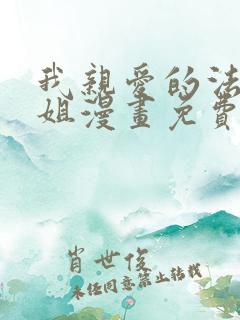 我親愛的法
姐漫畫免費
肖世俊
未经同意禁止转载